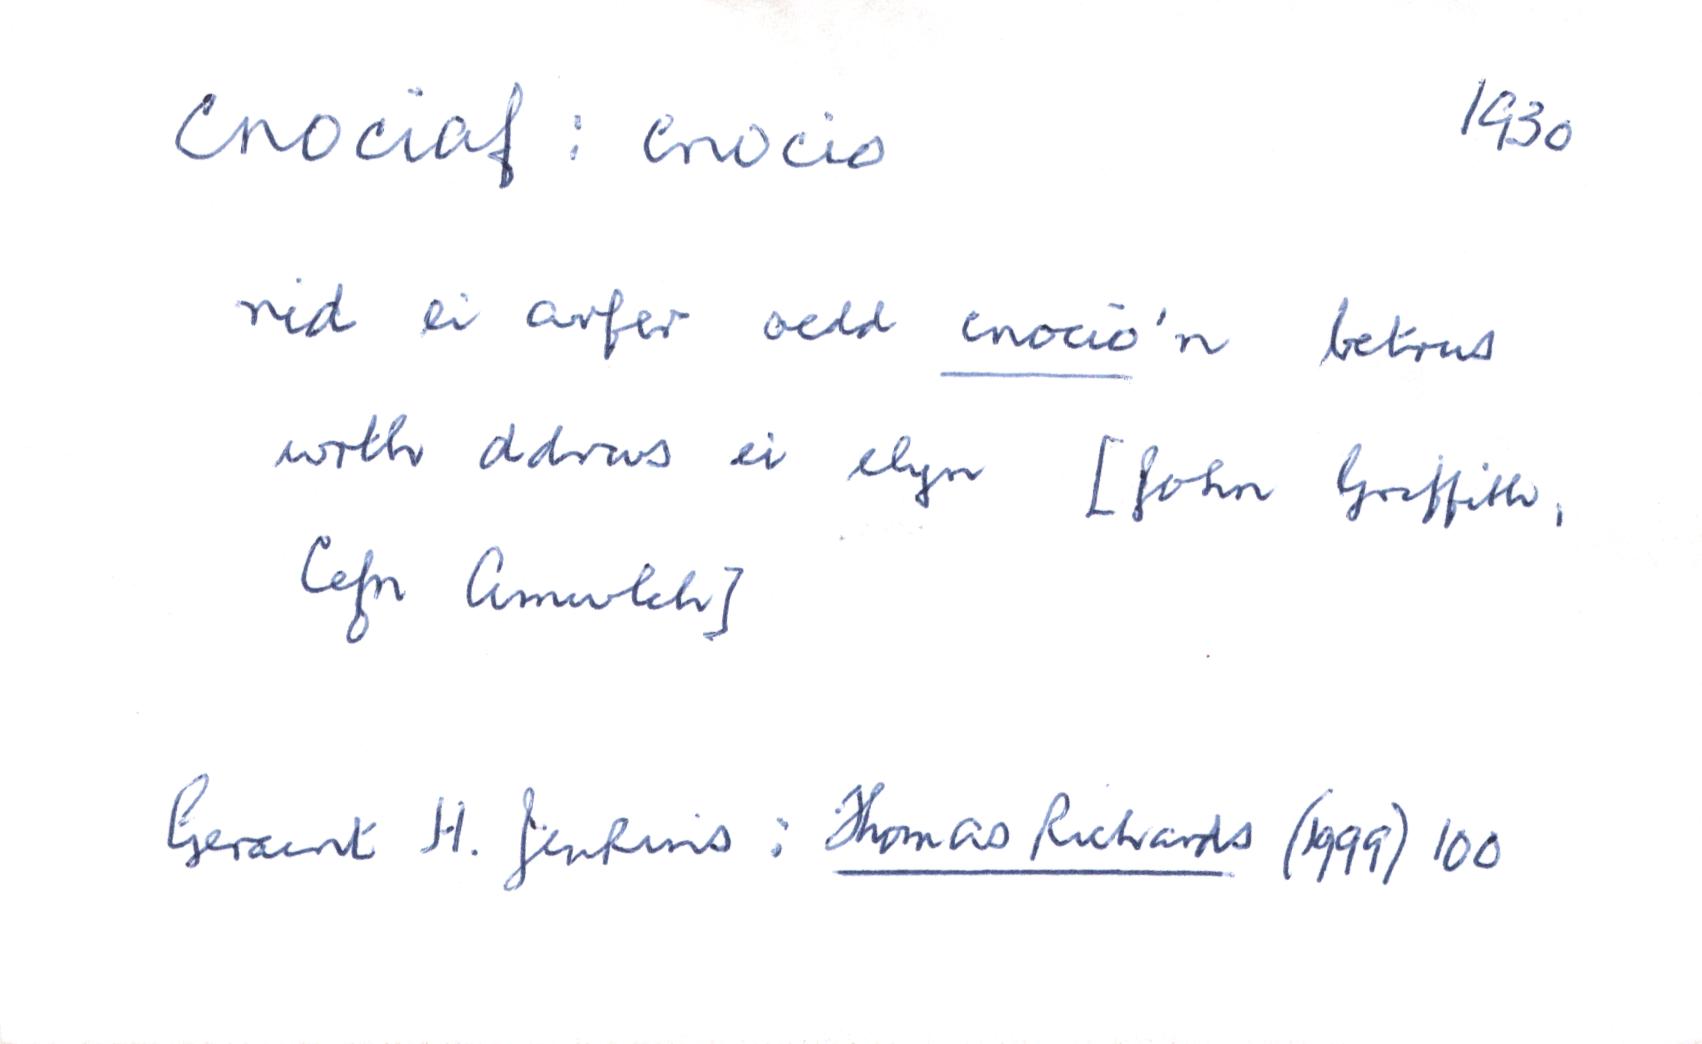 cnociaf : cnocio 1930
nid ei arfer oedd cnocio'n betrus
wrth ddrws ei elyn [John Griffith,
Cefn Amwlch]
Geraint H. Jenkins : Thomas Richards (1999) 100